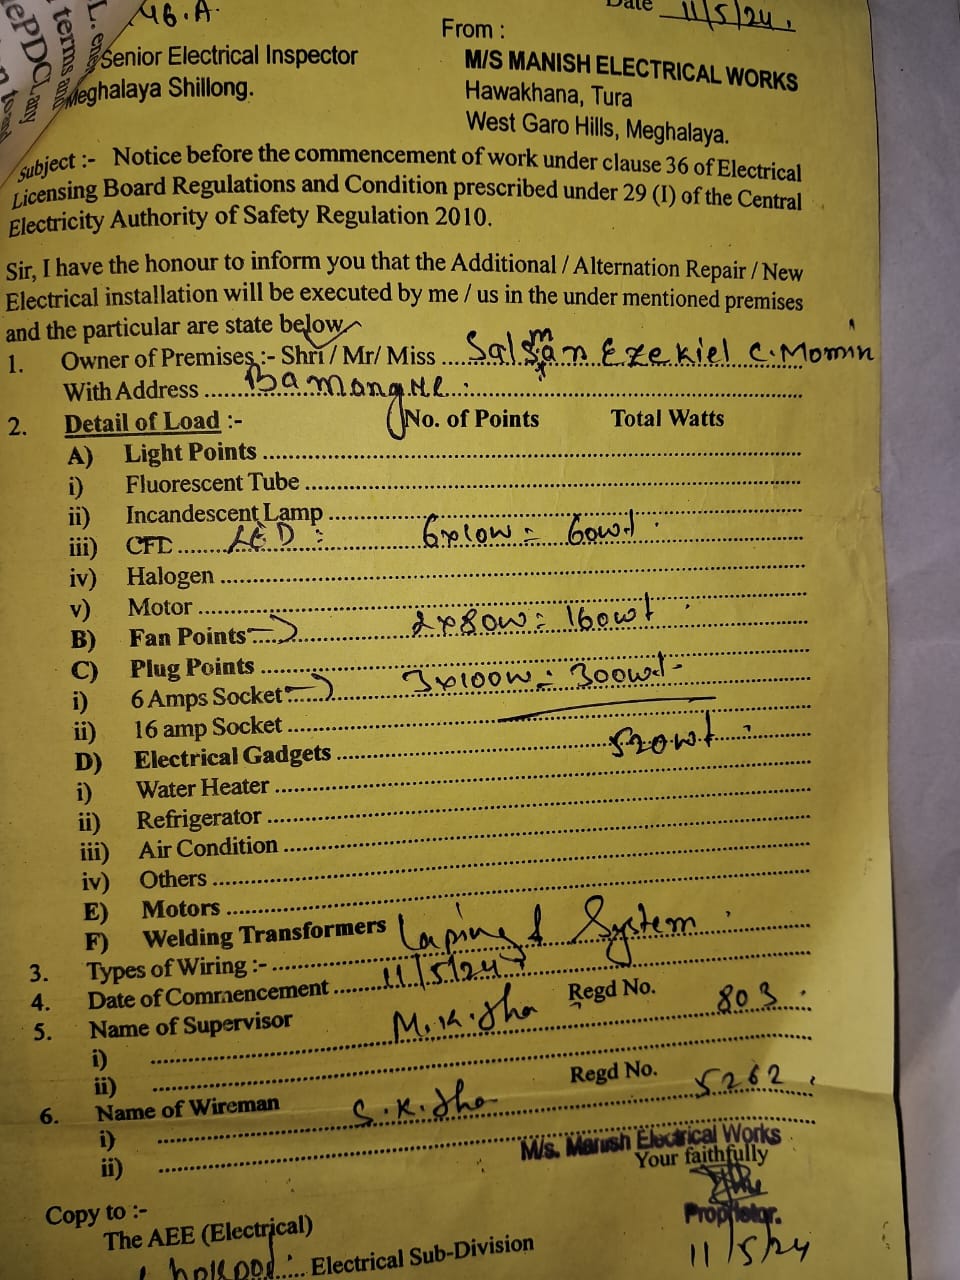 46.A.
Date 11/5/24.
L. en
terms and
ePDCL any
From :
Senior Electrical Inspector
M/S MANISH ELECTRICAL WORKS
Meghalaya Shillong.
Hawakhana, Tura
West Garo Hills, Meghalaya.
Subject :- Notice before the commencement of work under clause 36 of Electrical
Licensing Board Regulations and Condition prescribed under 29 (I) of the Central
Electricity Authority of Safety Regulation 2010.
Sir, I have the honour to inform you that the Additional / Alternation Repair / New
Electrical installation will be executed by me / us in the under mentioned premises
and the particular are state below
1. Owner of Premises :- Shri / Mr/ Miss .... Salman Ezekiel C. Momin
With Address ....
2. Detail of Load :- No. of Points Total Watts
A) Light Points
i) Fluorescent Tube
ii) Incandescent Lamp
iii) CFL LED : 6x10w = 60wt.
iv) Halogen
v) Motor
B) Fan Points 2x80w = 160wt
C) Plug Points
i) 6 Amps Socket 3x100w = 300wt
ii) 16 amp Socket
D) Electrical Gadgets 520wt
i) Water Heater
ii) Refrigerator
iii) Air Condition
iv) Others
E) Motors
F) Welding Transformers
3. Types of Wiring :- System
4. Date of Commencement 11/5/24
5. Name of Supervisor M.K. Jha Regd No. 803
i)
ii)
6. Name of Wireman S.K. Jha Regd No. 5262
i)
ii)
M/s. Manish Electrical Works
Your faithfully
Proprietor.
11/5/24
Copy to :-
The AEE (Electrical)
Electrical Sub-Division